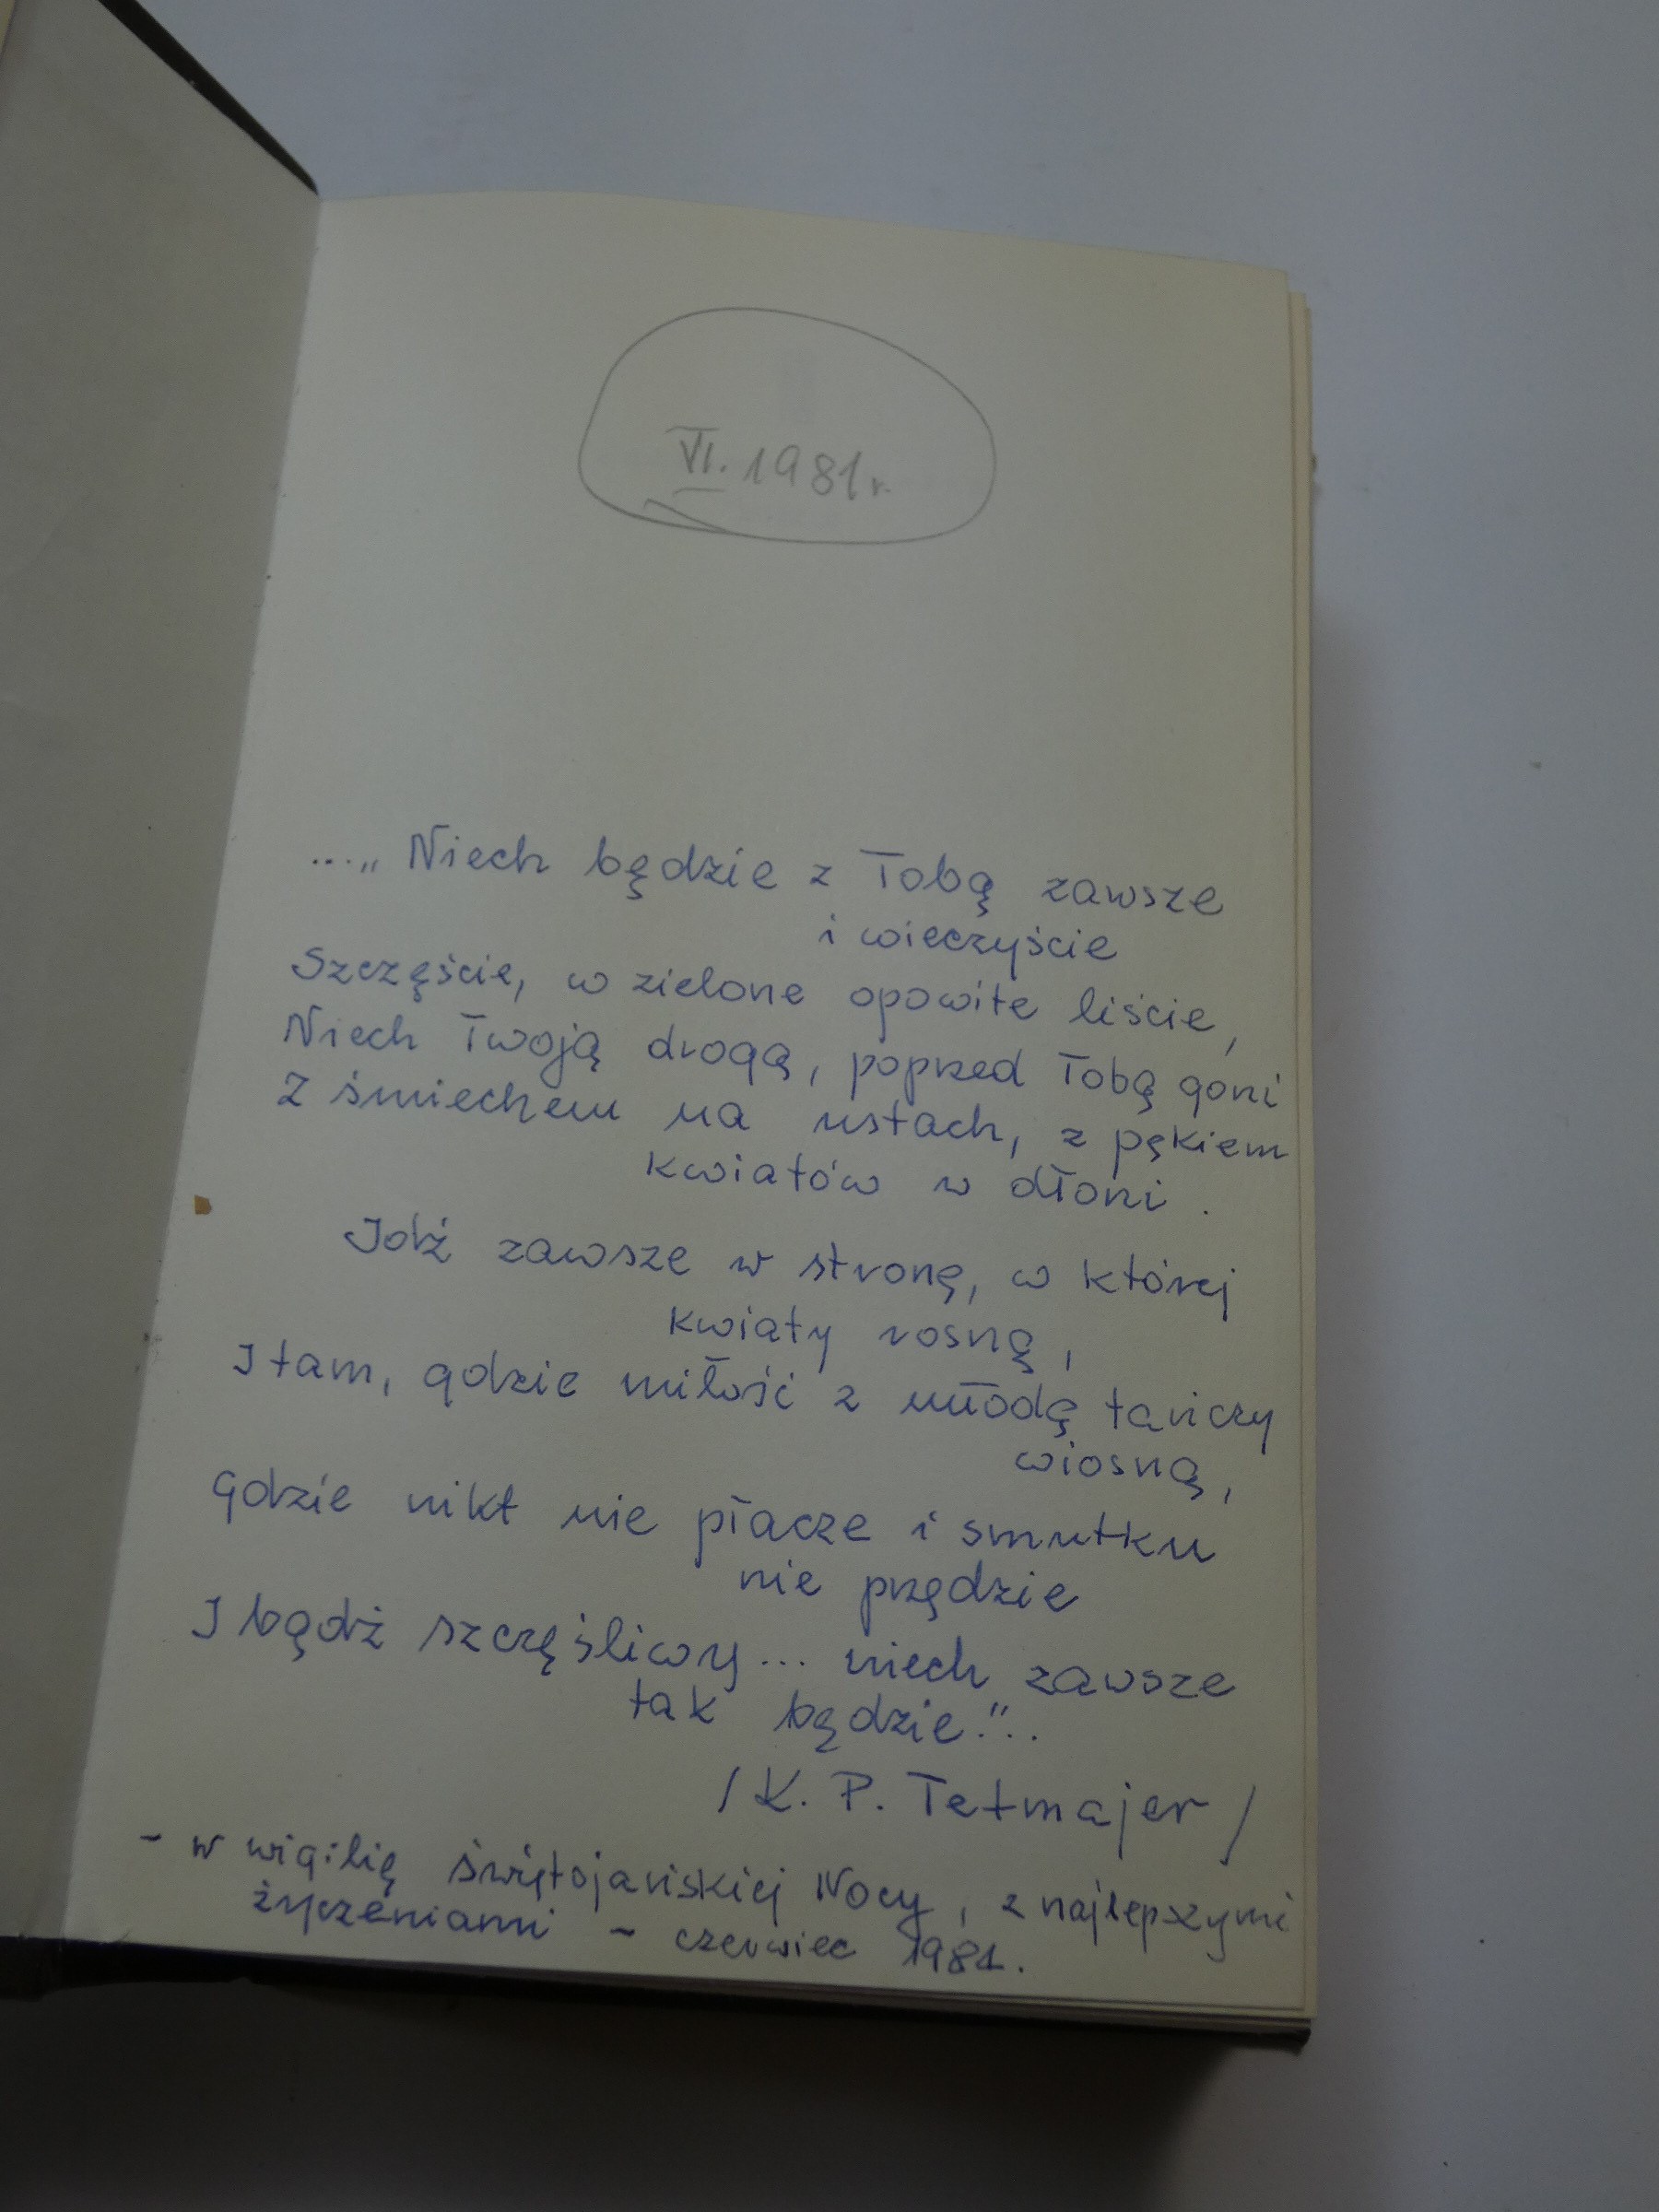 VI. 1981 r.
..." Niech będzie z Tobą zawsze
i wieczyście
Szczęście, w zielone opowite liście,
Niech Twoją drogą, poprzed Tobą goni
Z śmiechem na ustach, z pękiem
kwiatów w dłoni.
Idź zawsze w stronę, w której
kwiaty rosną,
I tam, gdzie miłość z młodą tańczy
wiosną,
gdzie nikt nie płacze i smutku
nie przędzie
I bądź szczęśliwy... niech zawsze
tak będzie."..
/K. P. Tetmajer/
- w wigilię świętojańskiej Nocy, z najlepszymi
życzeniami - czerwiec 1981.